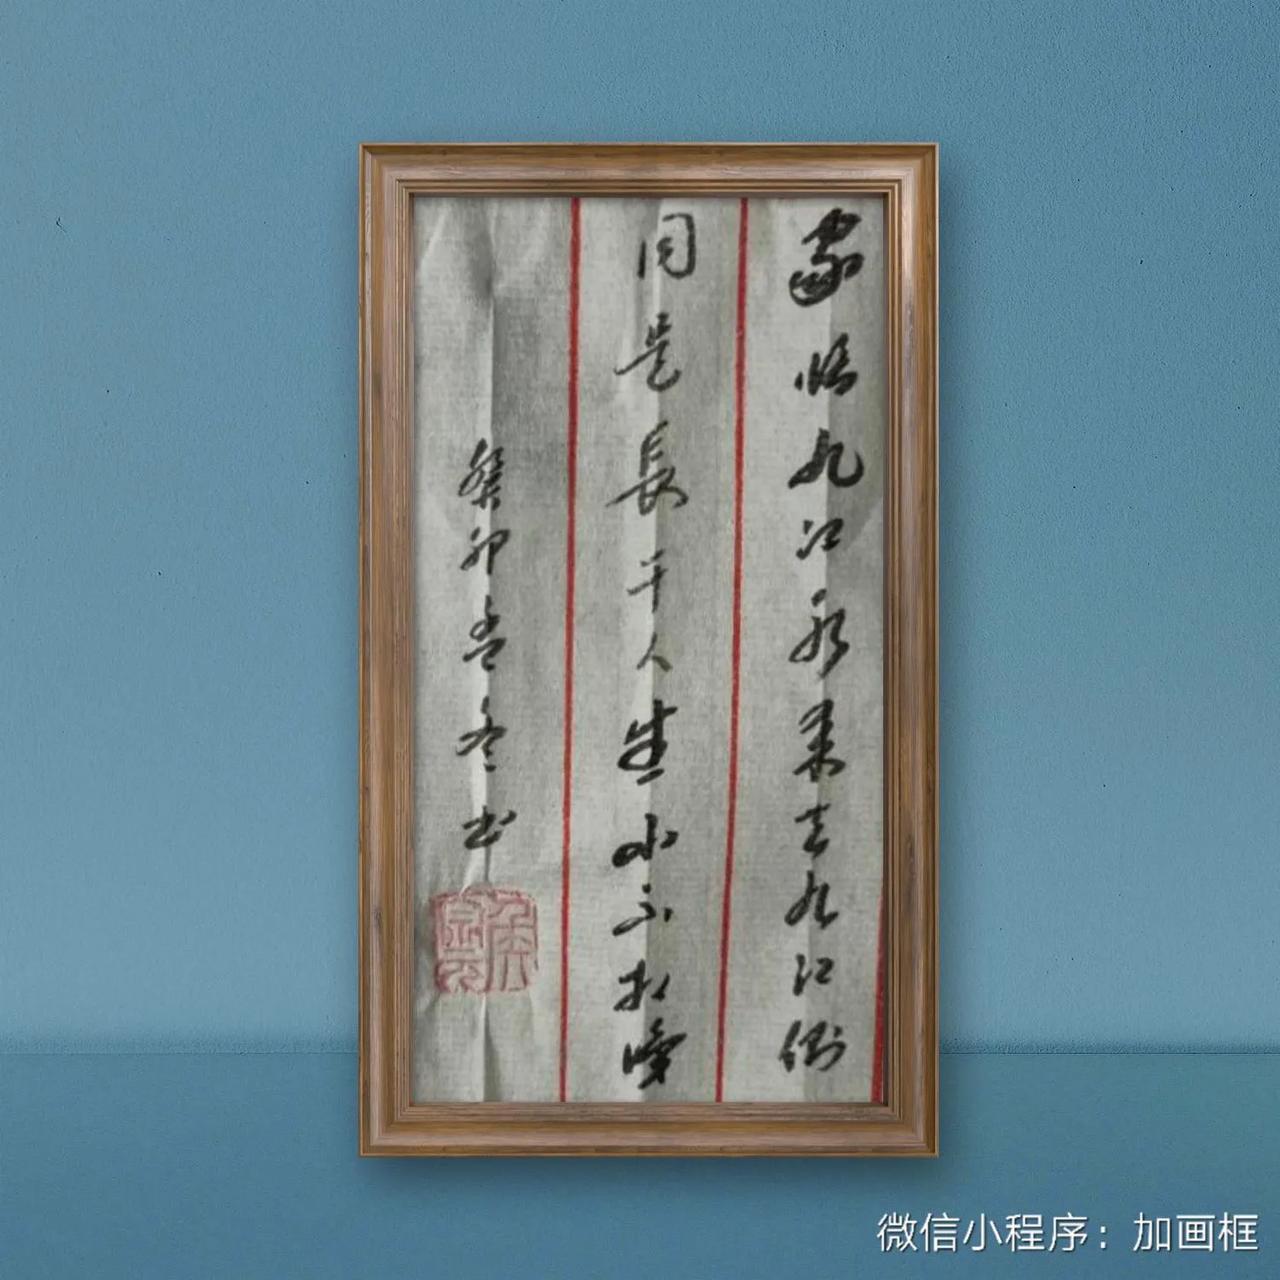 家临九江水来去九江侧
同是長干人生小不相識
癸卯孟冬书
微信小程序：加画框